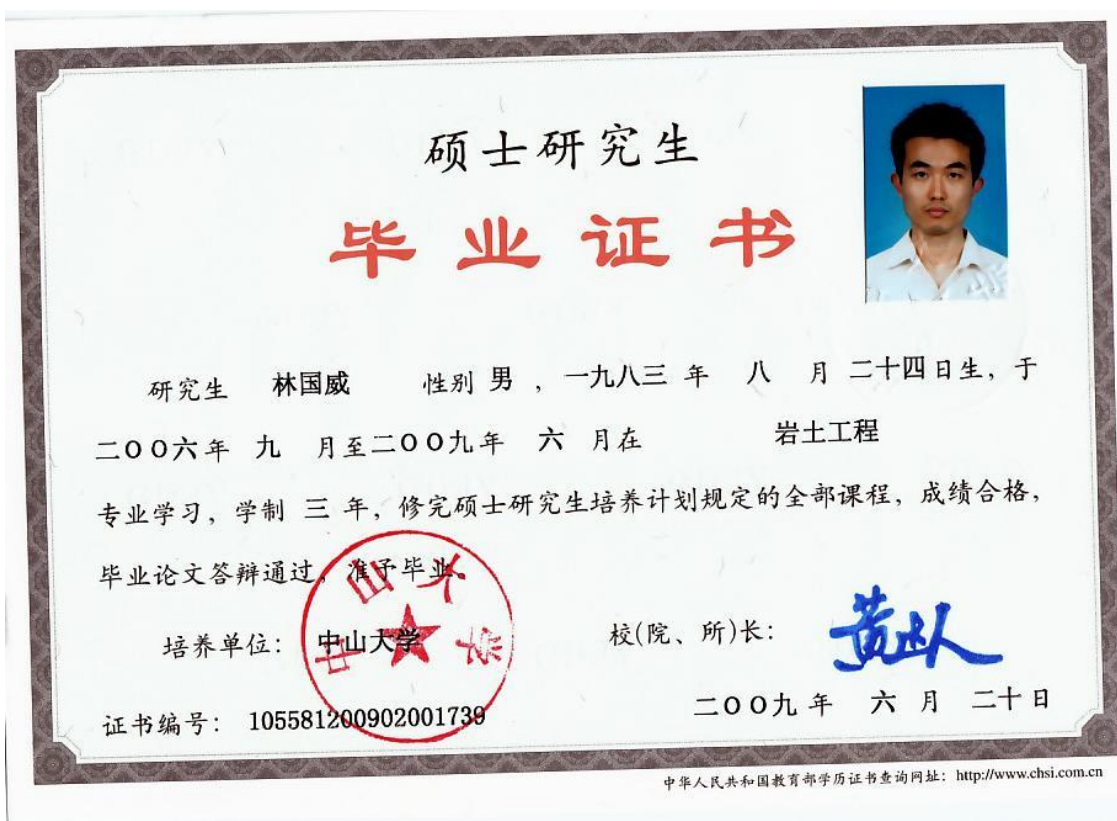 硕士研究生
毕业证书
研究生 林国威 性别 男 ，一九八三 年 八 月 二十四日生，于
二００六年 九 月至二００九年 六 月在 岩土工程
专业学习，学制 三 年，修完硕士研究生培养计划规定的全部课程，成绩合格，
毕业论文答辩通过，准予毕业。
中山大学
培养单位： 中山大学 校(院、所)长： 黄达人
证书编号： 105581200902001739 二００九年 六 月 二十日
中华人民共和国教育部学历证书查询网址：http://www.chsi.com.cn